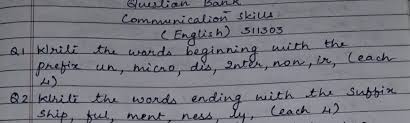 Question Bank
Communication Skills
(English) 311303
Q1 Write the words beginning with the
prefix un, micro, dis, Inter, non, ir, (each
4)
Q2 Write the words ending with the suffix
ship, ful, ment, ness, ly, (each 4)